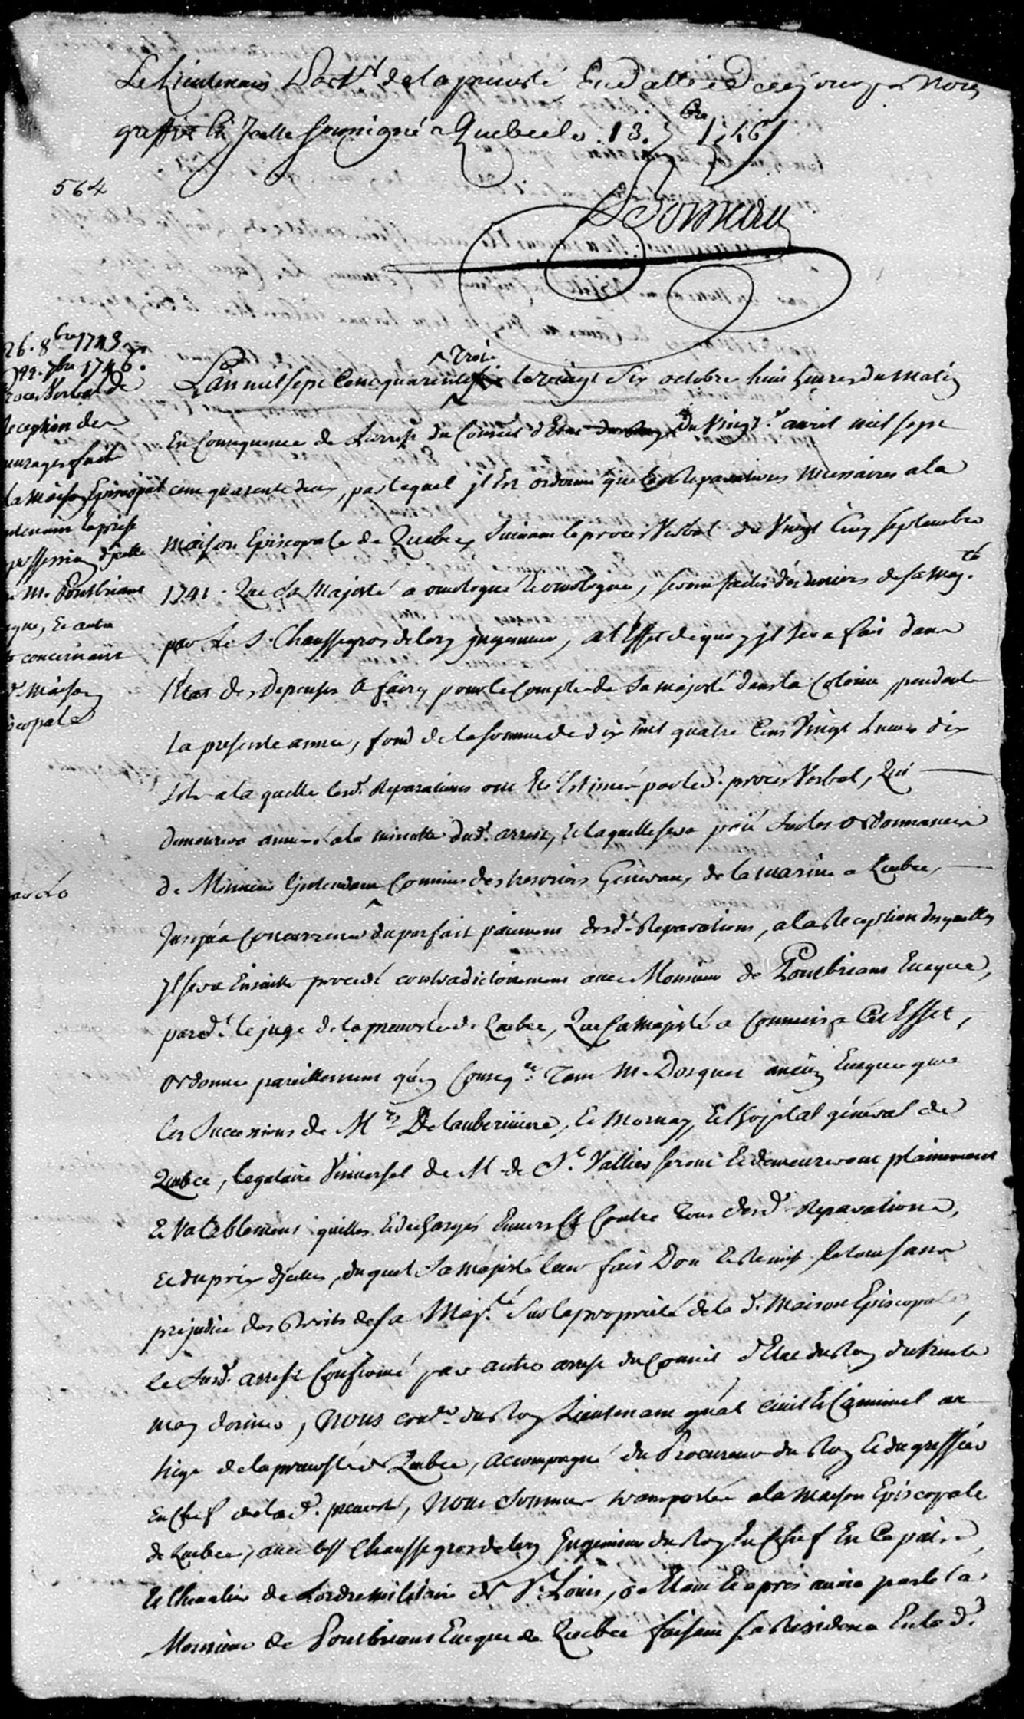 Le Lieutenant Part.er de la prevosté, En datte de ce jour, par Nous
greffier En Icelle soussigné a Quebec le 13. 7bre 1746
564
Boisseau
26. 8bre 1743.
22. 7bre 1746.
proces Verbal de
Reception des
ouvrages fait
a la maison Episcopale
contenant la prise
possession d'jcelle
M. Pontbriant
Evesque, et autre
concernant
d.e maison
Episcopale
L'an mil sept cent quarente trois le vingt six octobre huit heures du Matin
En Consequence de L'arrest du Conseil d'Etat du Vingt.e avril mil sept
cent quarente deux, par lequel jl Est ordonné que les Reparations necessaires a la
maison Episcopale de Quebec, suivant le proces Verbal du Vingt Cinq septembre
1741. Que Sa Majesté a omologué, seront faites des deniers de sa Maj.té
par Le S.r Chaussegros de Lery jngenieur, a L'Effet de quoy jl sera fait dans
l'Etat des Depenses a faire pour le Compte de Sa majesté dans la Colonie pendant
La presente année, fond de la somme de dix mil quatre Cens Vingt Livres dix
sols a la quelle lesd. Reparations ont Eté Estimées par led. proces Verbal, Qui
demeurera annexé a la minutte dud. arrest, et laquelle sera payé sur les ordonnances
de Monsieur l'jntendant Commis des tresoriers Generaux de la marine a Quebec
Jusqu'a Concurrence du parfait paiement desd. Reparations, a la Reception desquelles
jl sera Ensuite procedé contradictoirement avec Monsieur de Pontbriant Evesque,
pard.t le juge de la prevosté de Quebec, Que sa Majesté a Commis a Cet Effet,
ordonne pareillement qu'en Conseq.ce Tant M. Dosquet ancien Evesque que
les Successions de M.rs De Lauberiviere, et Mornay, et L'hopital général de
Quebec, legataire Vniversel de M. de S.t Vallier seront et demeureront plainement
et Valablement quittes et dechargés Envers Et Contre Tous desd. Reparations,
et du prix d'jcelles, duquel Sa Majesté leur fait Don et Remise, le tout sans
prejudice des droits de sa Maj.té sur la proprieté de la d. Maison Episcopale,
le susd. arrest Confirmé par autre arrest du Conseil d'Etat du Roy du trente
may dernier, Nous con.er du Roy Lieutenant gñal Civil et Criminel au
siege de la prevosté de Quebec, accompagné du Procureur du Roy et du greffier
En Chef de la d. prevosté, Nous sommes transportés a la Maison Episcopale
de Quebec, avec led. s.r Chaussegros de Lery Ingenieur du Roy En Chef En Ce païs,
et Chevalier de L'ordre militaire de S.t Louis, ou Etant Et apres avoir parlé a
Monsieur de Pontbriant Evesque de Quebec faisant sa Residence En la d.e